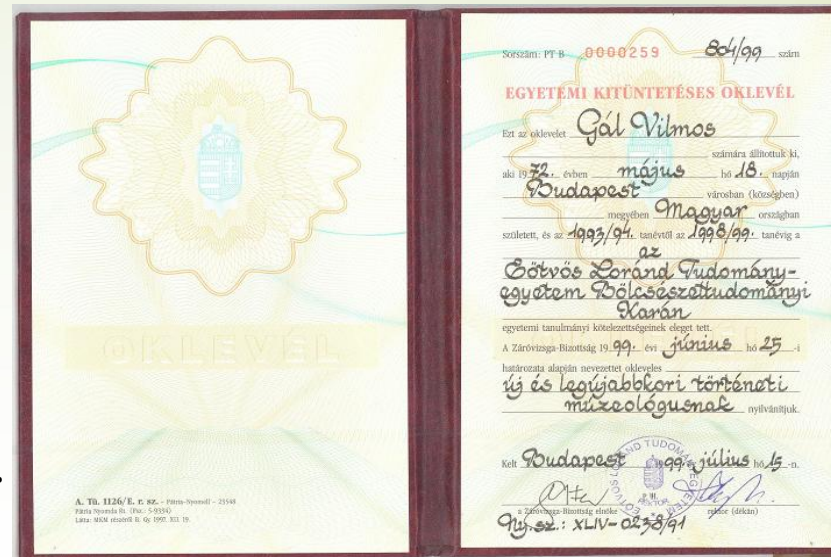 OKLEVÉL
A. Tü. 1126/E. r. sz. - Pátria-Nyomell - 23548
Pátria Nyomda Rt. (Fsz.: 5-9334)
Látta: MKM részéről B. Gy. 1997. XII. 19.
Sorszám: PT B 0000259 804/99 szám
EGYETEMI KITÜNTETÉSES OKLEVÉL
Ezt az oklevelet Gál Vilmos
számára állítottuk ki,
aki 1972. évben május hó 18. napján
Budapest városban (községben)
megyében Magyar országban
született, és az 1993/94. tanévtől az 1998/99. tanévig a
az
Eötvös Loránd Tudomány-
egyetem Bölcsészettudományi
Karán
egyetemi tanulmányi kötelezettségeinek eleget tett.
A Záróvizsga-Bizottság 1999. évi június hó 25-i
határozata alapján nevezettet okleveles
új és legújabbkori történeti
múzeológusnak nyilvánítjuk.
Kelt Budapest 1999. július hó 15-n.
EÖTVÖS LORÁND TUDOMÁNYEGYETEM
REKTOR
a Záróvizsga-Bizottság elnöke rektor (dékán)
Ny.sz.: XLIV-0238/91